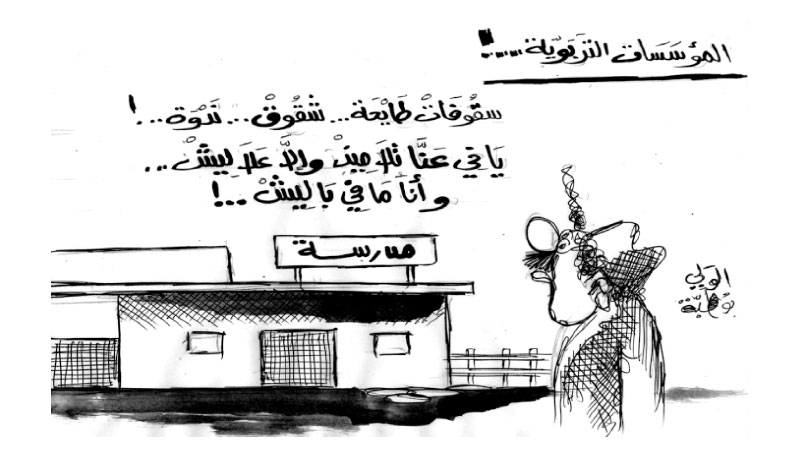 المؤسَسَات التربَويّة....!
سقُوفَاتْ طَايْحَة... شْقُوقْ... نَدْوَة...!
يَا في عَنَّا تلَامِيذْ وإلَّا عَلَالِيشْ...
وأنَا مَا فِي بَالِيشْ...!
مدرسة
الوَلي
بُوهبّة